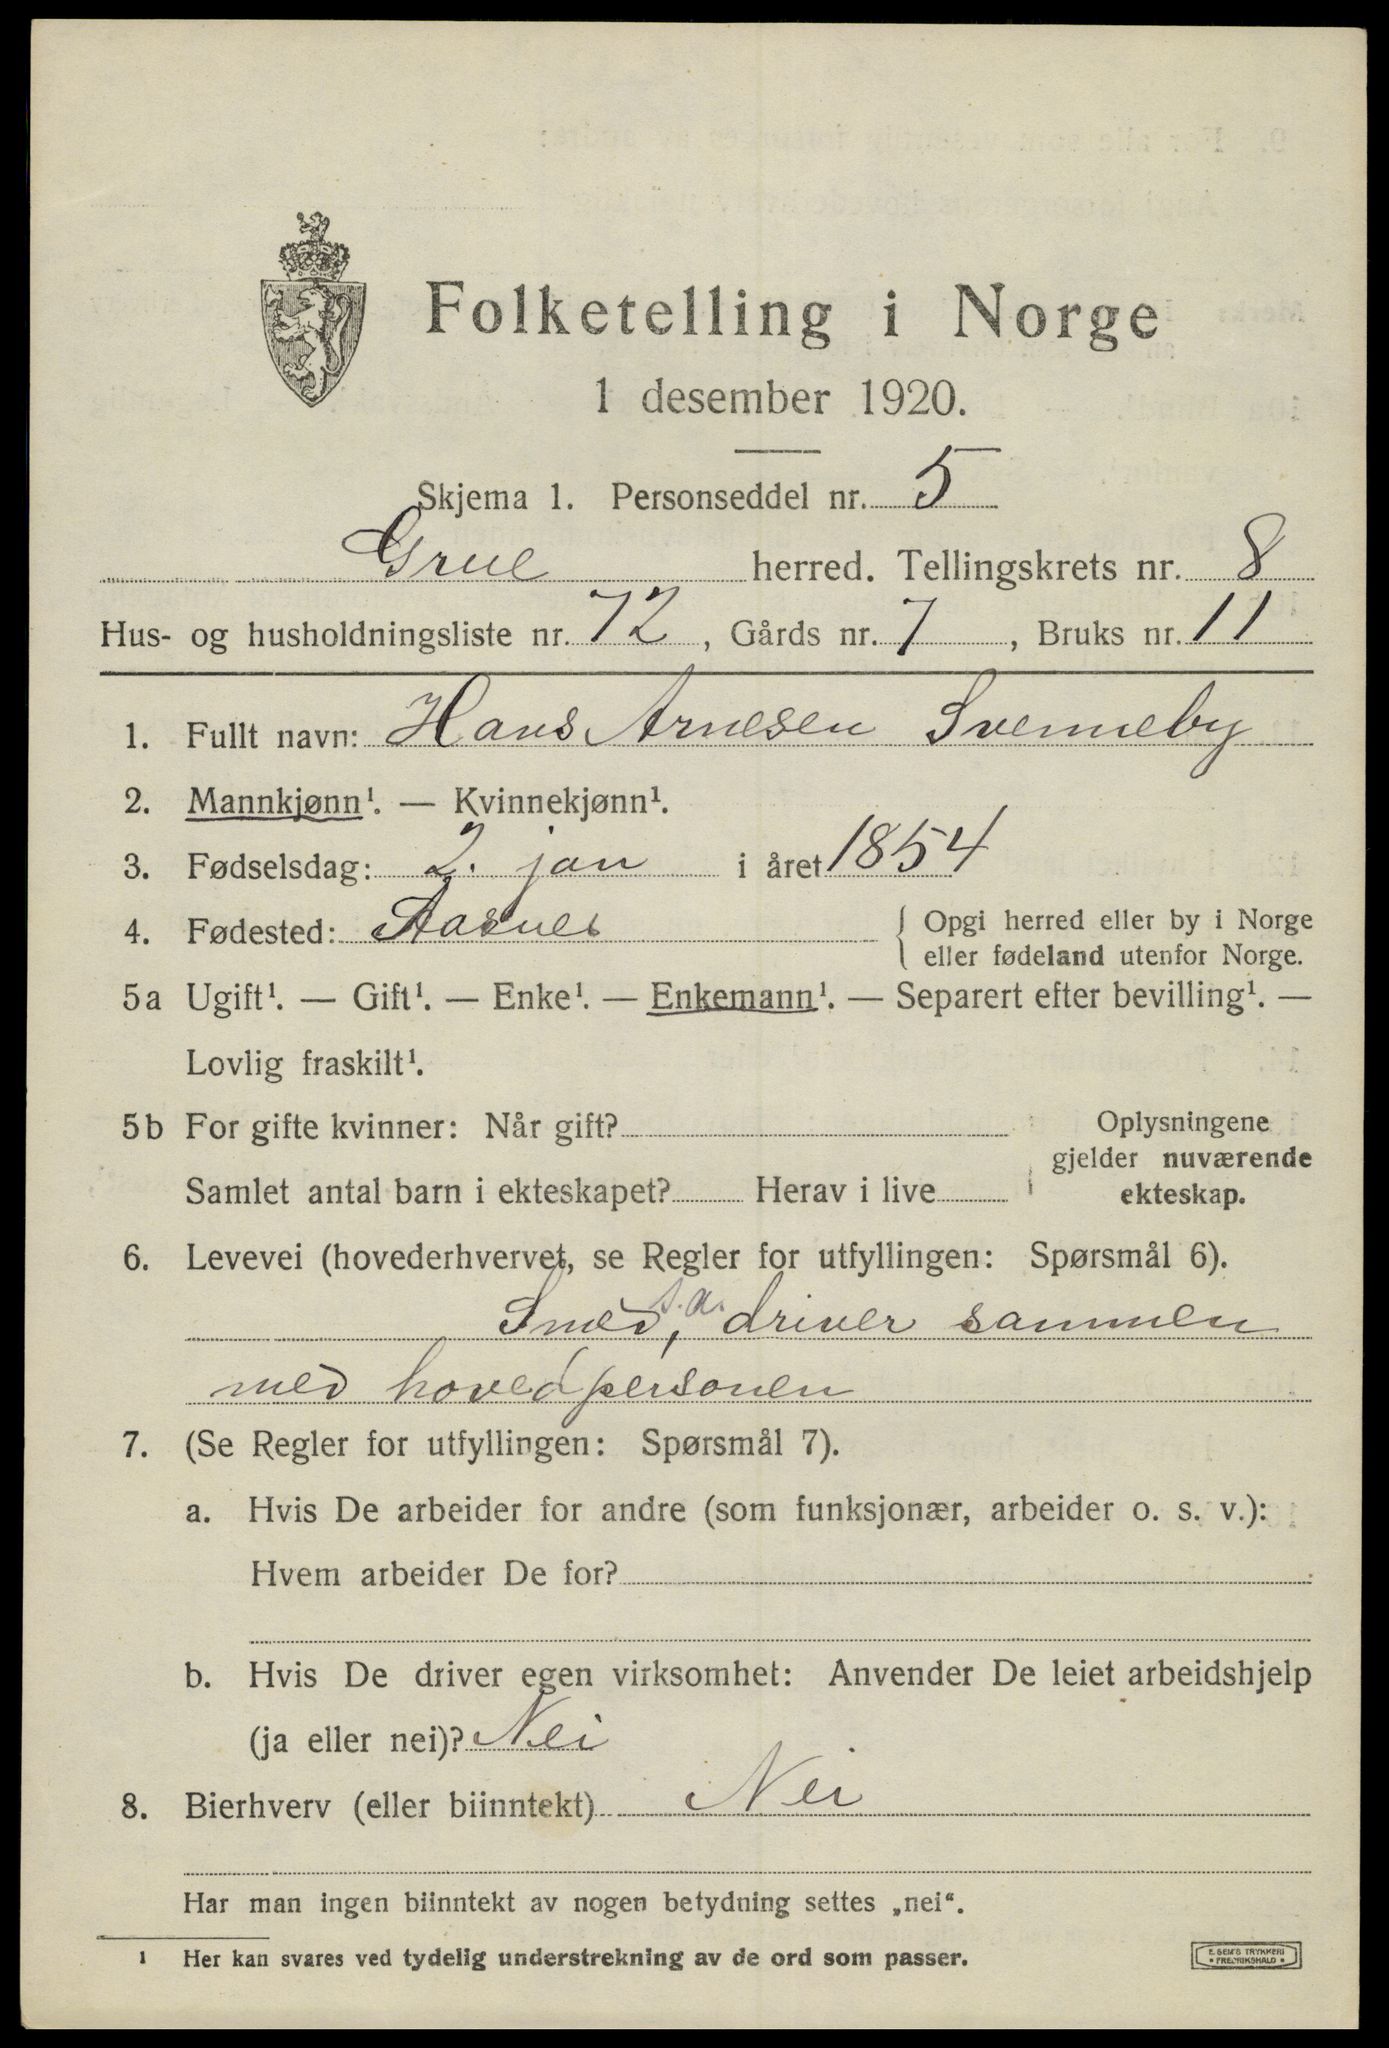 Folketelling i Norge
1 desember 1920.
Skjema 1. Personseddel nr. 5
Grue herred. Tellingskrets nr. 8
Hus- og husholdningsliste nr. 72, Gårds nr. 7, Bruks nr. 11
1. Fullt navn: Hans Arnesen Svenneby
2. Mannkjønn¹. — Kvinnekjønn¹.
3. Fødselsdag: 2. jan i året 1854
4. Fødested: Aasnes { Opgi herred eller by i Norge
eller fødeland utenfor Norge.
5a Ugift¹. — Gift¹. — Enke¹. — Enkemann¹. — Separert efter bevilling¹. —
Lovlig fraskilt¹.
5b For gifte kvinner: Når gift?
Samlet antal barn i ekteskapet? Herav i live
Oplysningene
gjelder nuværende
ekteskap.
6. Levevei (hovederhvervet, se Regler for utfyllingen: Spørsmål 6).
s.a.
Smed, driver sammen
med hovedpersonen
7. (Se Regler for utfyllingen: Spørsmål 7).
a. Hvis De arbeider for andre (som funksjonær, arbeider o. s. v.):
Hvem arbeider De for?
b. Hvis De driver egen virksomhet: Anvender De leiet arbeidshjelp
(ja eller nei)? Nei
8. Bierhverv (eller biinntekt) Nei
Har man ingen biinntekt av nogen betydning settes „nei“.
¹ Her kan svares ved tydelig understrekning av de ord som passer.
E. SEM'S TRYKKERI
• FREDRIKSHALD •